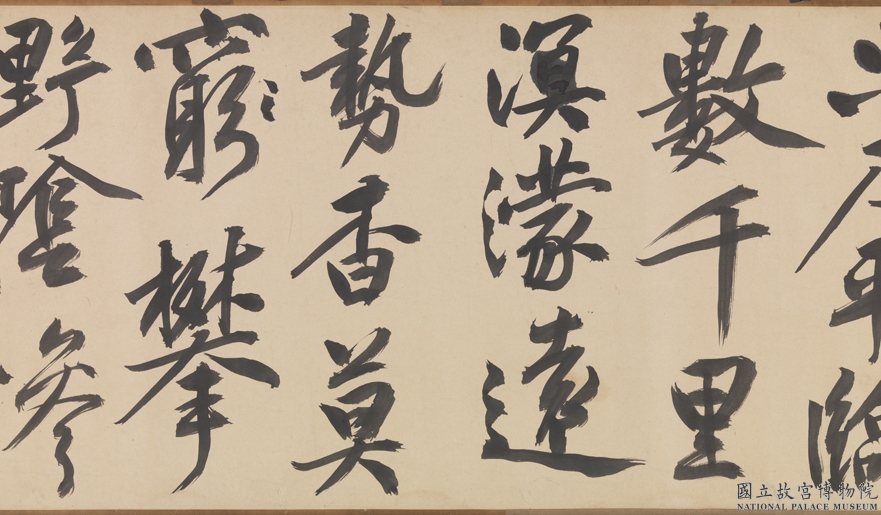 平臨
數千里
溟濛遠
勢杳莫
窮攀
野陰參
國立故宮博物院
NATIONAL PALACE MUSEUM